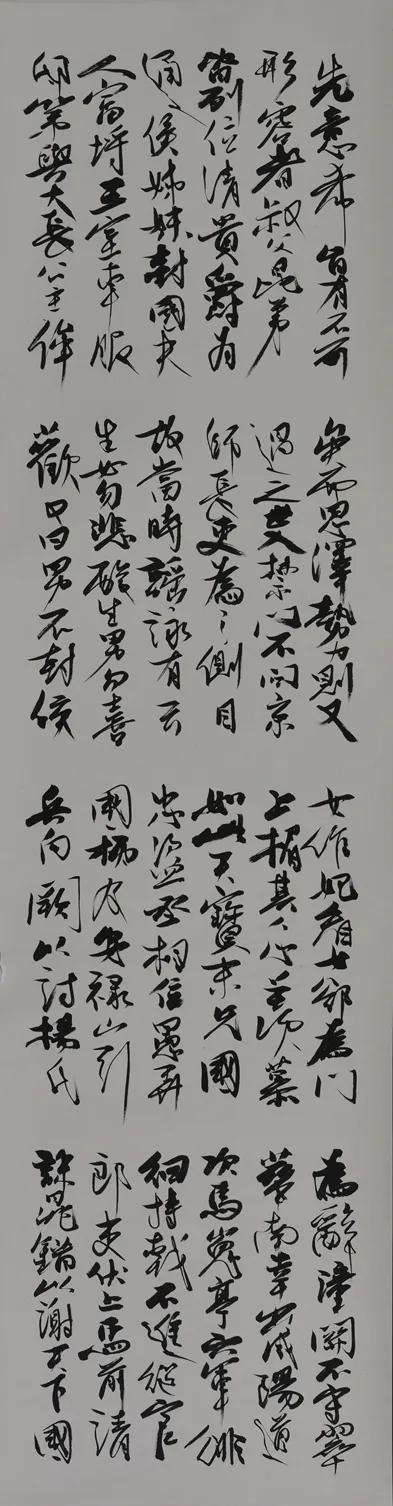 先意希旨有不可
形容者叔父昆弟
皆列位清貴爵為
通侯姊妹封國夫
人富埒王室車服
邸第與大長公主侔
矣而恩澤勢力則又
過之出入禁門不問京
師長吏為之側目
故當時謡詠有云
生女勿悲酸生男勿喜
歡又曰男不封侯
女作妃看女卻為門
上楣其人心羨慕
如此天寶末兄國
忠盜丞相位愚弄
國柄及安禄山引
兵向闕以討楊氏
為辭潼關不守翠
華南幸出咸陽道
次馬嵬亭六軍徘
徊持戟不進從官
郎吏伏上馬前請
誅晁錯以謝天下國